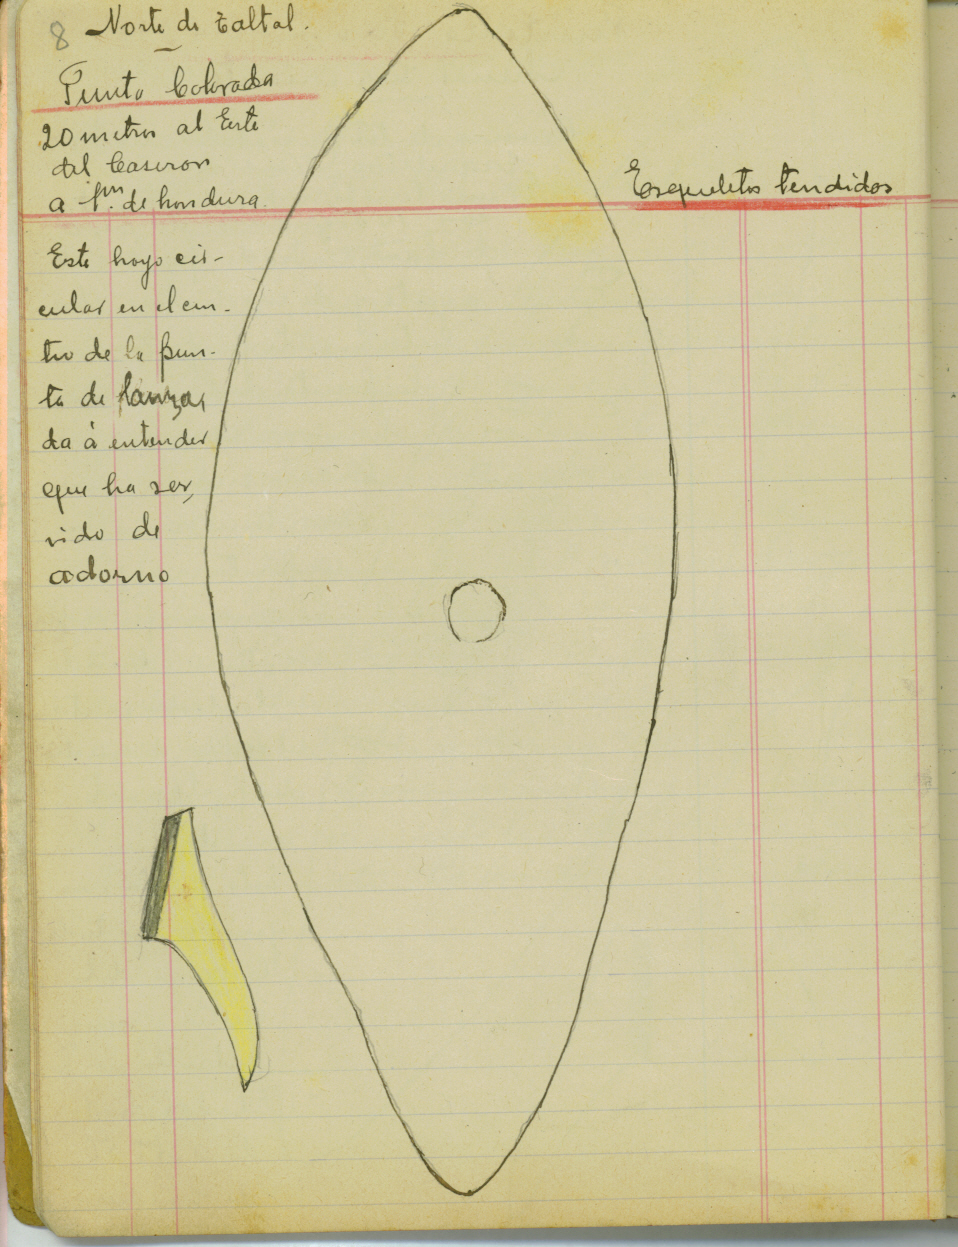 8 Norte de Taltal.
Punta Colorada
20 metros al Este
del Caseron
a 1m. de hondura.
Esqueletos tendidos
Este hoyo cir-
cular en el cen-
tro de la pun-
ta de lanza,
da á entender
que ha ser,
vido de
adorno